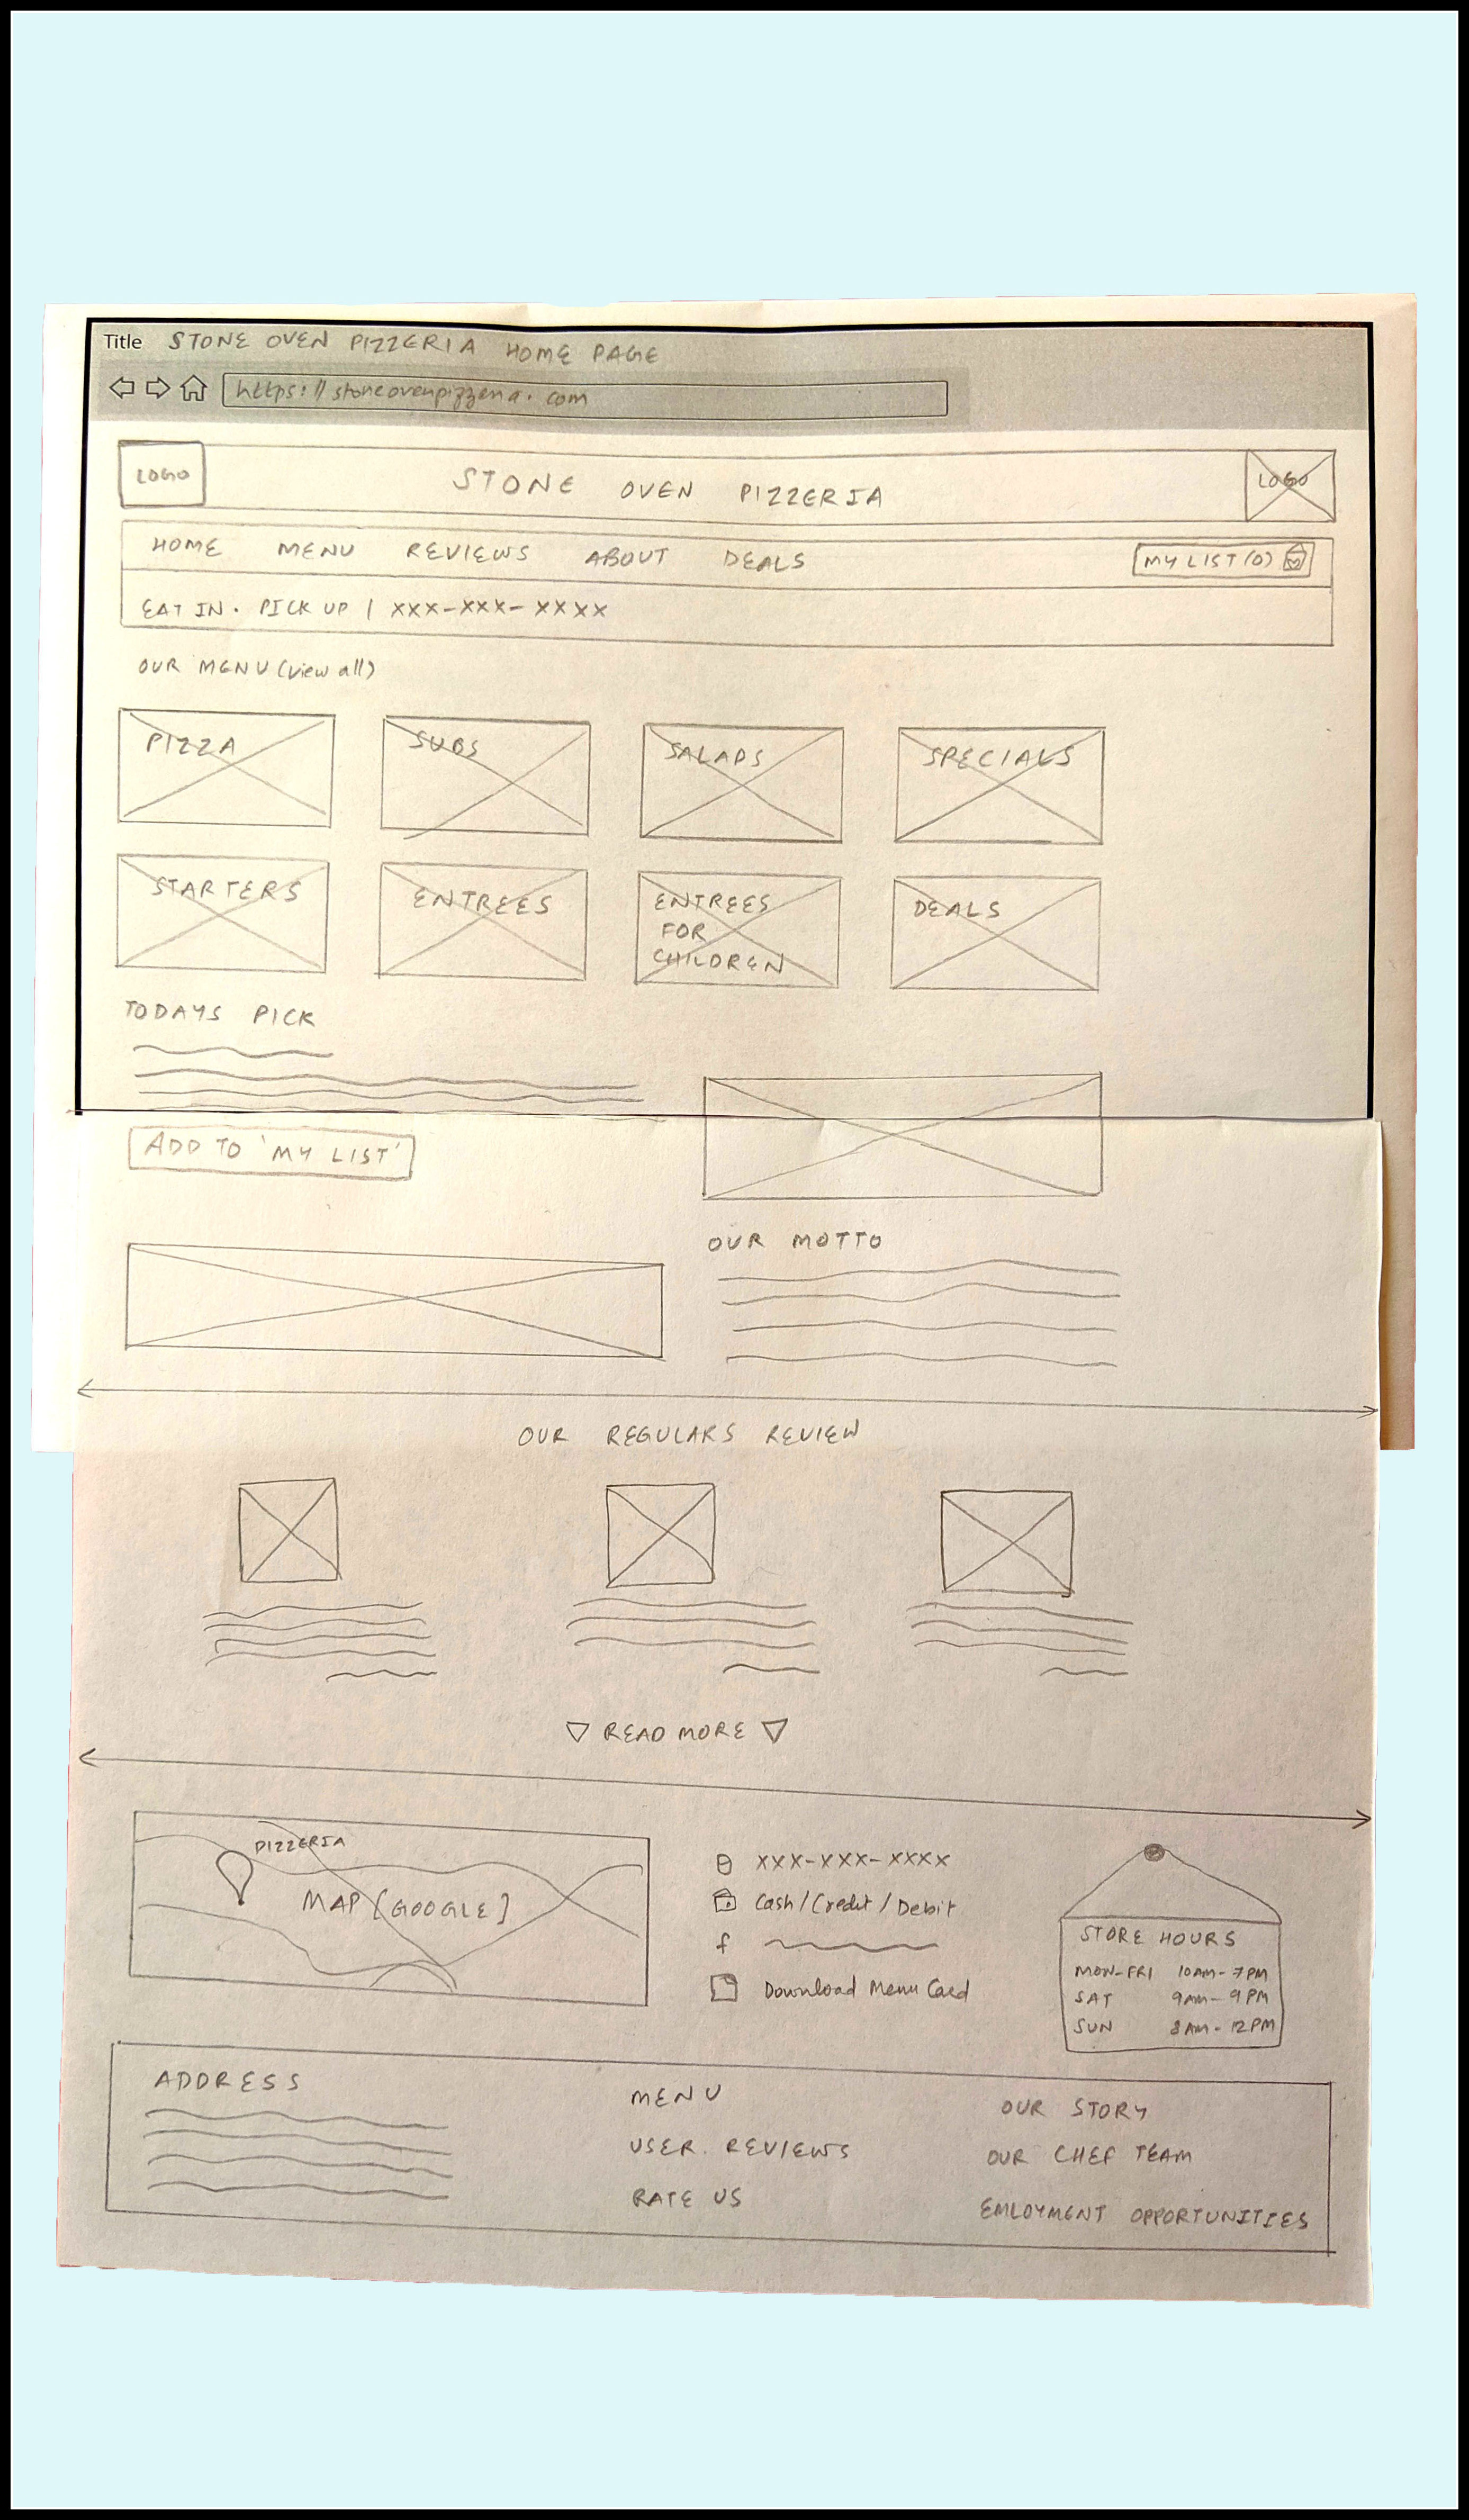 Title STONE OVEN PIZZERIA HOME PAGE
https://stoneovenpizzeria.com
LOGO STONE OVEN PIZZERIA LOGO
HOME MENU REVIEWS ABOUT DEALS MY LIST(0)
EAT IN. PICK UP | XXX-XXX-XXXX
OUR MENU (view all)
PIZZA SUBS SALADS SPECIALS
STARTERS ENTREES ENTREES FOR CHILDREN DEALS
TODAYS PICK
ADD TO 'MY LIST'
OUR MOTTO
OUR REGULARS REVIEW
READ MORE
PIZZERIA
MAP [GOOGLE]
XXX-XXX-XXXX
Cash/Credit/Debit
f
Download Menu Card
STORE HOURS
MON-FRI 10AM-7PM
SAT 9AM-9PM
SUN 8AM-12PM
ADDRESS
MENU
USER. REVIEWS
RATE US
OUR STORY
OUR CHEF TEAM
EMLOYMENT OPPORTUNITIES